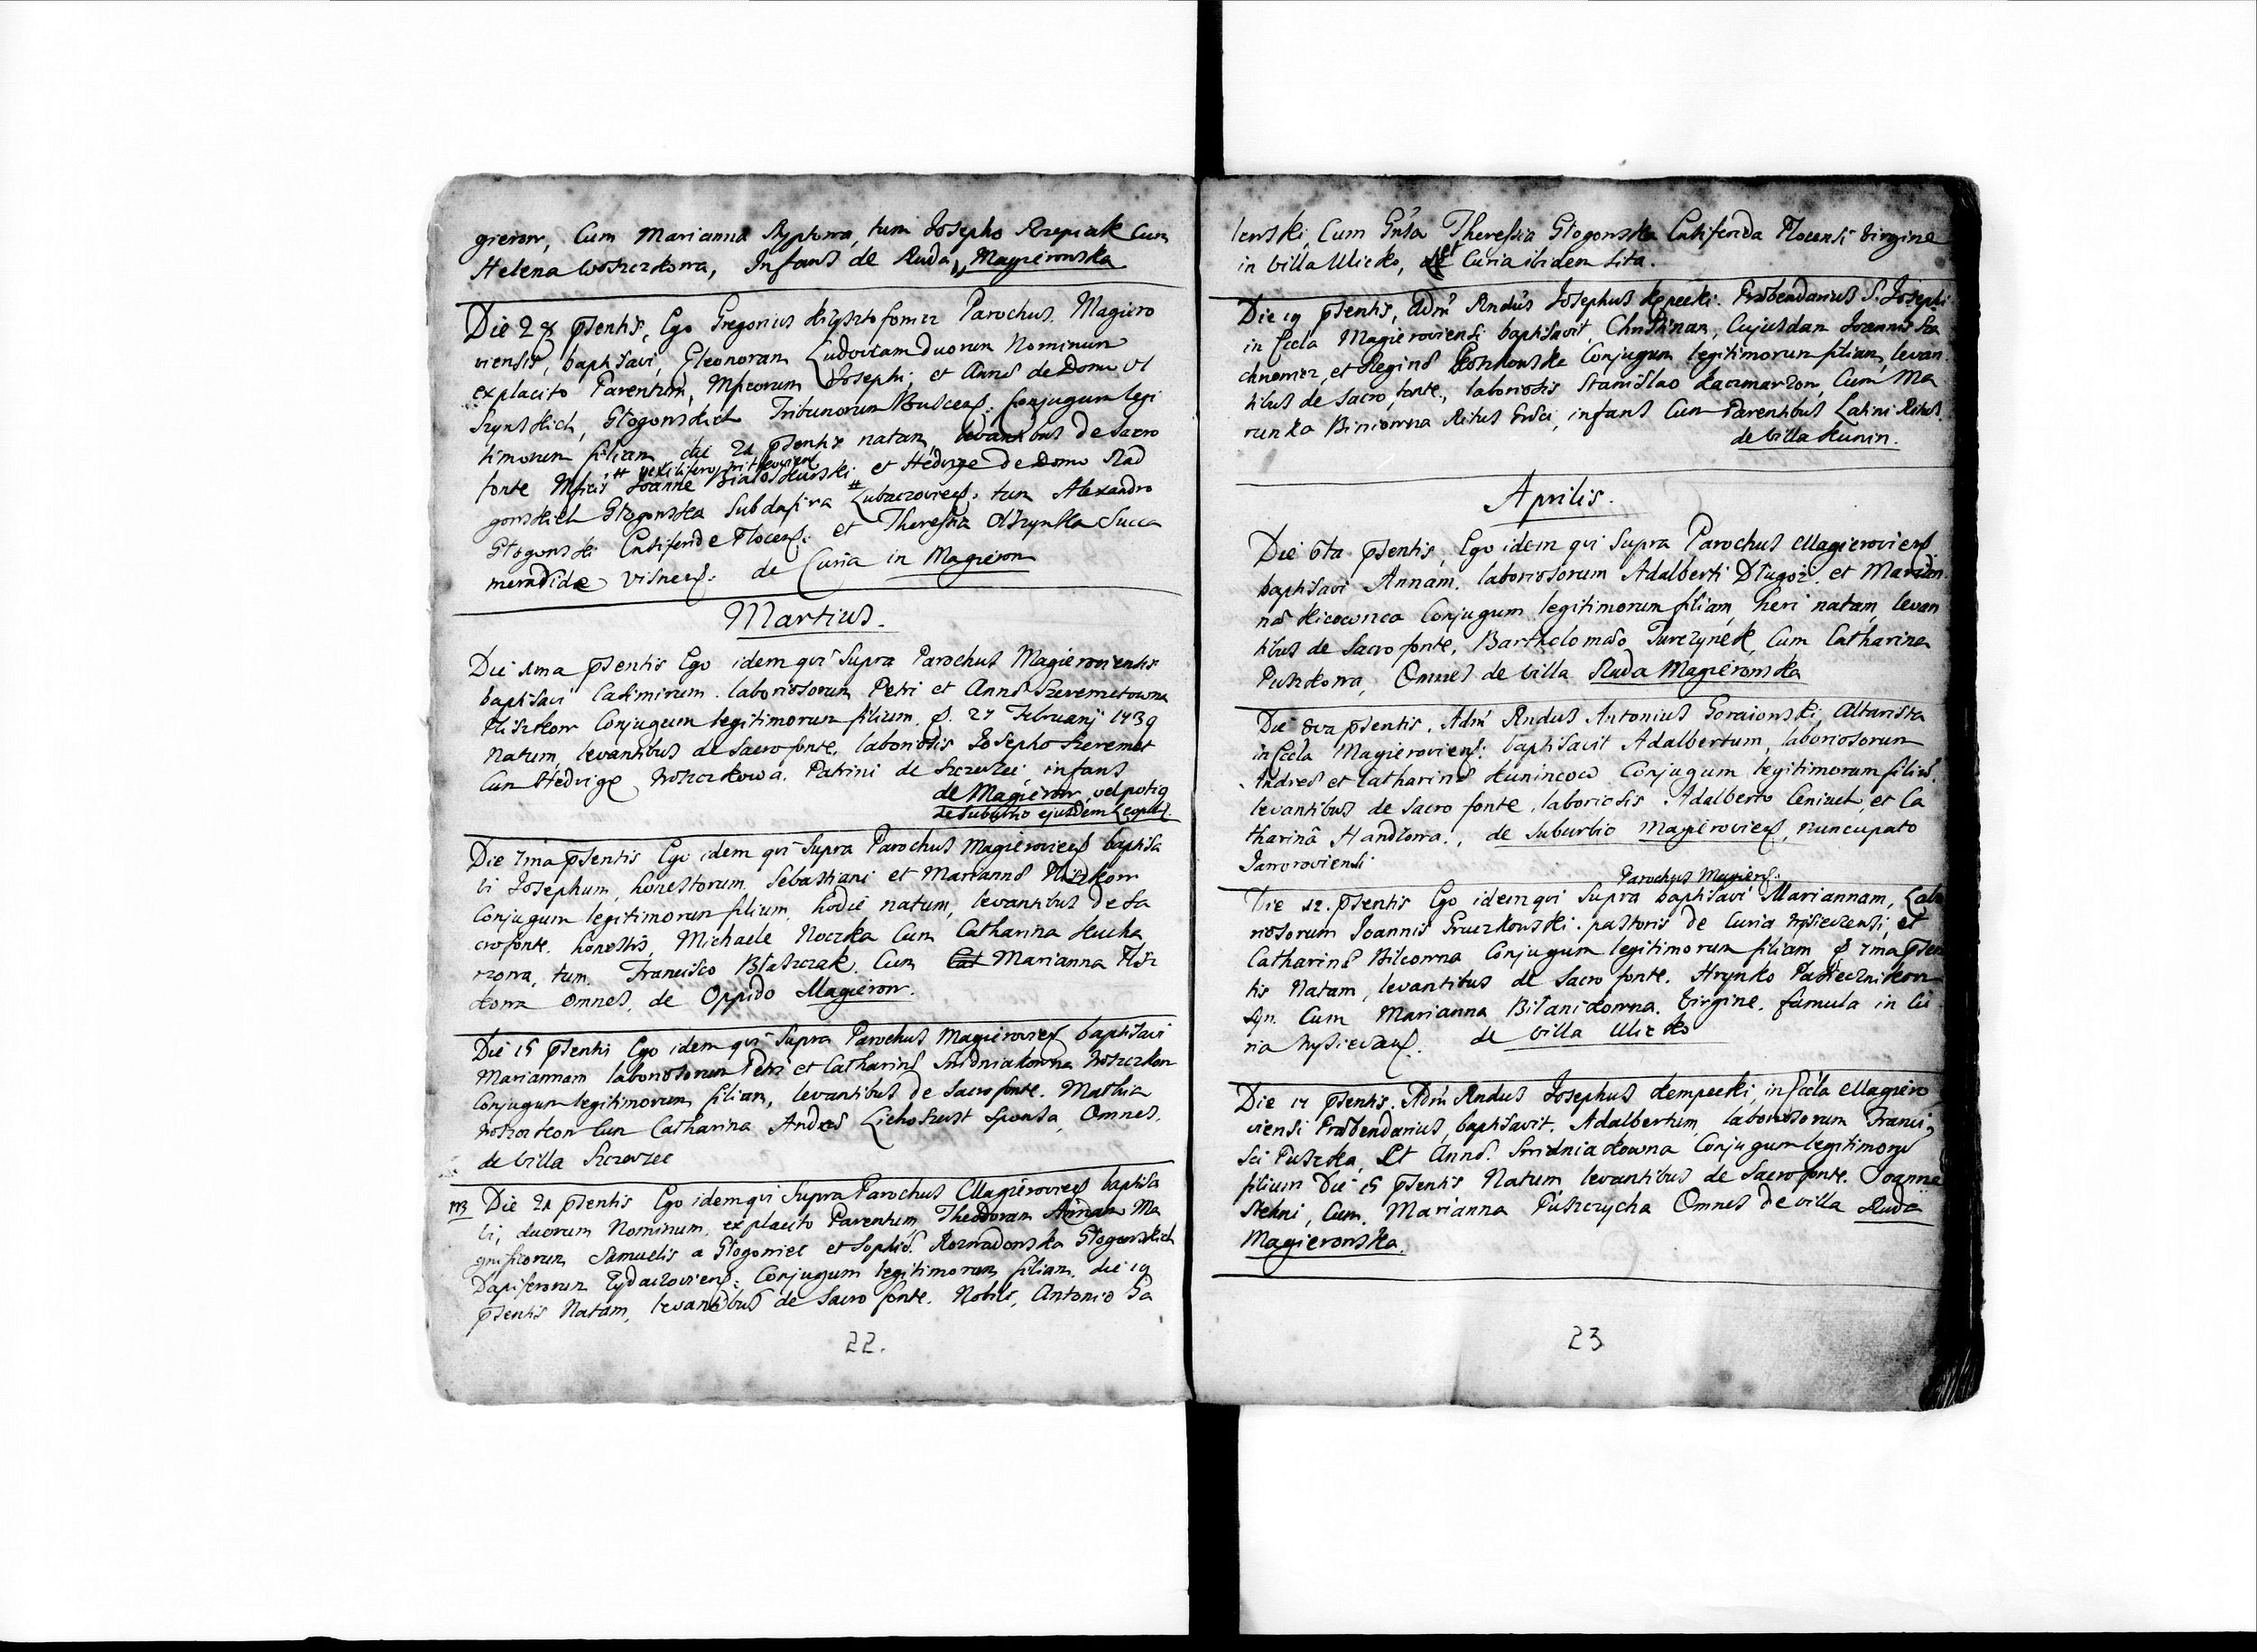 gierow, Cum Marianna Syptowa, tum Josepho Rzepiak Cum
Helena Woszczkowa, Infans de Ruda Magierowska
Die 28 psentis, Ego Gregorius Krzysztofowicz Parochus Magiero
viensis, baptisavi, Eleonoram Ludovicam duorum Nominum
ex placito Parentum, Mficorum Josephi, et Annæ de Domo Ol
szynskich, Głogowskich Tribunorum Buscen: Conjugum legi
timorum filiam die 21 psentis natam, levantibus de Sacro
fonte Mficis Joanne Białoskurski et Hedvige de Domo Rad
# vexillifero
gowskich Głogowska Subdapifera # Lubaczovien: tum Alexandro
Głogowski Ensiferide Plocen: et Theressia Olszynska Succa
meradidæ Visnen: de Curia in Magierow
Martius.
Die 1ma psentis Ego idem qui Supra Parochus Magieroviensis
baptisavi Casimirum laboriosorum Petri et Annæ Szeremetowna
Pliszkow Conjugum legitimorum filium d. 27 Februarij 1739
Natum, levantibus de Sacro fonte, laboriosis Josepho Szeremet
Cum Hedvige Woszczkowa. Patrini de Szczerzec, infans
de Magierow, vel potiq
de Suburbio ejusdem
Die 7ma psentis Ego idem qui Supra Parochus Magierovien baptisa
vi Josephum, honestorum Sebastiani et Mariannæ Pliszkow
Conjugum legitimorum filium, hodie natum, levantibus de Sa
cro fonte. honestis, Michaele Noczka Cum Catharina Kucha
rzowa, tum Francisco Błaszczak Cum Cat Marianna Plisz
kowa Omnes, de Oppido Magierow.
Die 15 psentis Ego idem qui Supra Parochus Magierovien baptisavi
Mariannam laboriosorum Petri et Catharinæ Smidniakowna Woszczkow
Conjugum legitimorum filiam, levantibus de Sacro fonte. Mathia
Woszczkow Cum Catharina Andreæ Lichoszerst Sponsa, Omnes,
de Villa Szczerzec
Die 21 psentis Ego idem qui Supra Parochus Magierovien baptisa
vi, duorum Nominum, ex placito Parentum, Theodoram Annam Ma
gnificorum Samuelis a Głogowiec et Sophiæ Rozwadowska Głogowskich
Dapiferorum Zydaczovien: Conjugum legitimorum filiam, die 19
psentis Natam, levantibus de Sacro fonte. Nobili, Antonio Za
22.
lewski, Cum Gnsa Theressia Głogowska Ensiferida Plocensi Virgine
in Villa Ulicko, et Curia ibidem Sita.
Die 19 psentis, Adm Rndus Josephus Kępecki. Præbendarius S. Josephi
in Eccla Magieroviensi baptisavit, Christinam, Cujusdam Joannis Sta
chnowicz, et Reginæ Koszkowske Conjugum legitimorum filiam, levan
tibus de Sacro fonte, laboriosis Stanislao Kaczmarzow, Cum Ma
runka Biniowna Ritus Græci, infans Cum Parentibus Latini Ritus
de Villa Kunin.
Aprilis.
Die 6ta psentis, Ego idem qui Supra Parochus Magierovien
baptisavi Annam. laboriosorum Adalberti Długoż et Marian
næ Kicownca Conjugum legitimorum filiam, heri natam, levan
tibus de Sacro fonte, Bartholomæo Turczynek, Cum Catharina
Puszkowa, Omnes de Villa Ruda Magierowska
Die 8va psentis. Adm Rndus Antonius Goraiowski, Altarista
in Eccla Magierovien: baptisavit Adalbertum, laboriosorum
Andreæ et Catharinæ Kunincow Conjugum legitimorum filium.
levantibus de Sacro fonte, laboriosis Adalberto Ceniuch, et Ca
tharinâ Handzowa, de Suburbio Magierovien, nuncupato
Jaworoviensi
Parochus Magieren:
Die 12. psentis Ego idem qui Supra baptisavi Mariannam, Labo
riosorum Joannis Gruczkowski. pastoris de Curia et
Catharinæ Bilcowna Conjugum legitimorum filiam d 7ma psen
tis Natam, levantibus de Sacro fonte. Hrynko Pasiecznikow
Syn. Cum Marianna Bilanikowna. Virgine, famula in Cu
ria de Villa Ulicko
Die 17 psentis. Adm Rndus Josephus Kempecki, in Eccla Magiero
viensi Præbendarius, baptisavit. Adalbertum, laboriosorum Franci
sci Puszka, Et Annæ. Smidniakowna Conjugum legitimoru
filium Die 15 psentis Natum levantibus de Sacro fonte. Joanne
Stehni, Cum. Marianna Puszczycha Omnes de Villa Ruda
Magierowska.
23